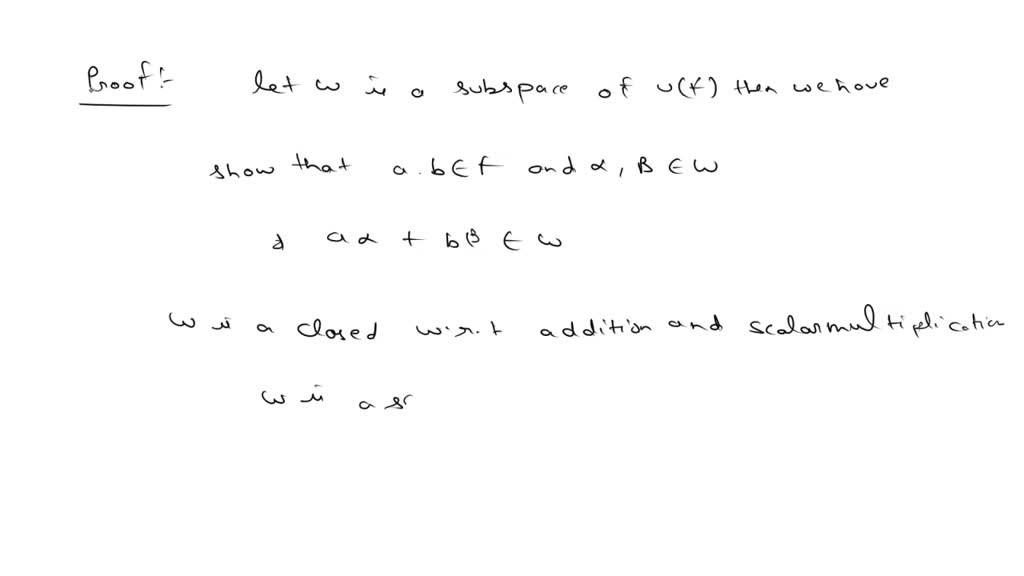 Proof :- let w is a subspace of v(f) then we have
show that a.b ∈ f and α, β ∈ w
⇒ aα + bβ ∈ w
w is a closed w.r.t addition and scalar multiplication
w is a s